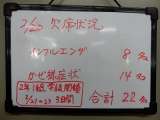 2/20 欠席状況
インフルエンザ 8名
かぜ様症状 14名
2年1組 学級閉鎖
2/21~23 3日間
合計 22名